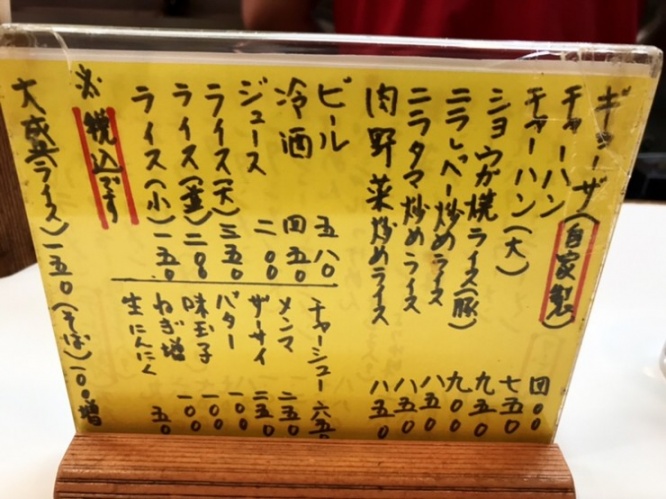 ギョーザ(自家製) 四00
チャーハン 七五0
チャーハン(大) 九五0
ショウガ焼ライス(豚) 九00
ニラレバー炒めライス 八五0
ニラタマ炒めライス 八五0
肉野菜炒めライス 八五0
ビール 五八0
冷酒 四五0
ジュース 二00
ライス(大)
ライス(並) 二00
ライス(小) 一五0
チャーシュー 六五0
メンマ 二五0
ザーサイ 二五0
バター 一00
味玉子 一00
ねぎ増 一00
生にんにく 五0
※税込です
大盛(ライス)一五0(そば)一00増